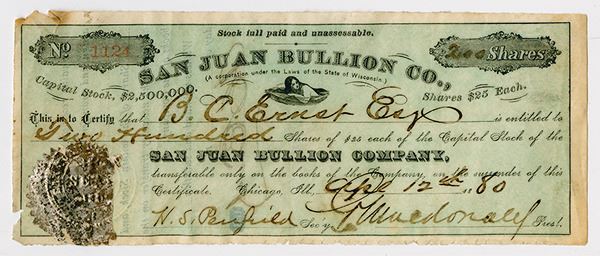 Stock full paid and unassessable.
No 1124
200 Shares
SAN JUAN BULLION CO.,
(A corporation under the Laws of the State of Wisconsin.)
Capital Stock, $2,500,000.
Shares $25 Each.
This is to Certify that B. C. Ernst Esq is entitled to
Two Hundred Shares of $25 each of the Capital Stock of the
SAN JUAN BULLION COMPANY,
transferable only on the books of the Company, on the surrender of this
Certificate. Chicago, Ill., Apl 12th 1880
H. S. Penfield Sec'y. Macdonald Prest.